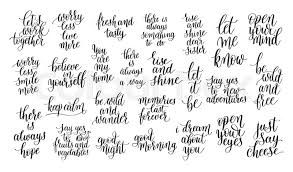 let's
work
together
worry
less
live
more
fresh and
tasty
there is
always
something to
do
rise and
shine
sister
let
me
know
open
your
mind
worry
less
smile
more
believe
in
yourself
You
are
my
home
there
is
always
a
way
rise
and
shine
let
it
be
say yes
to new
adventures
be wild
and
free
there
is
always
hope
keep calm
say yes
to
fruits and
vegetables
be wild
and
wander
good
night
memories
last
forever
good
morning
i dream
about
you
open
your
eyes
just
say
cheese